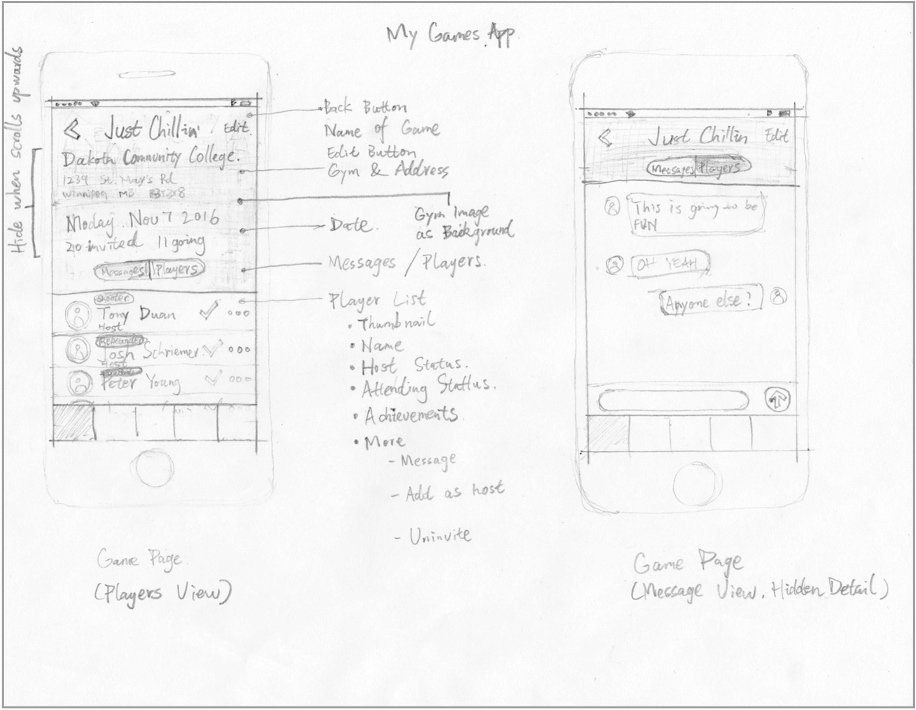 My Games App
Hide when scrolls upwards
Just Chillin'
Edit
Dakota Community College.
1239 St. Mary's Rd
Winnipeg MB
Moday Nov 7 2016
20 invited 11 going
Messages Players
Shooter
Tony Duan
Host
Rebounder
Josh Schriemer
Host
Peter Young
Back Button
Name of Game
Edit Button
Gym & Address
Gym Image
as Background
Date
Messages / Players.
Player List
• Thumbnail
• Name
• Host Status.
• Attending Stattus.
• Achievements
• More
- Message
- Add as host
- Uninvite
Game Page
(Players View)
Just Chillin
Edit
Messages Players
This is going to be
FUN
OH YEAH
Anyone else?
Game Page
(Message View. Hidden Detail)